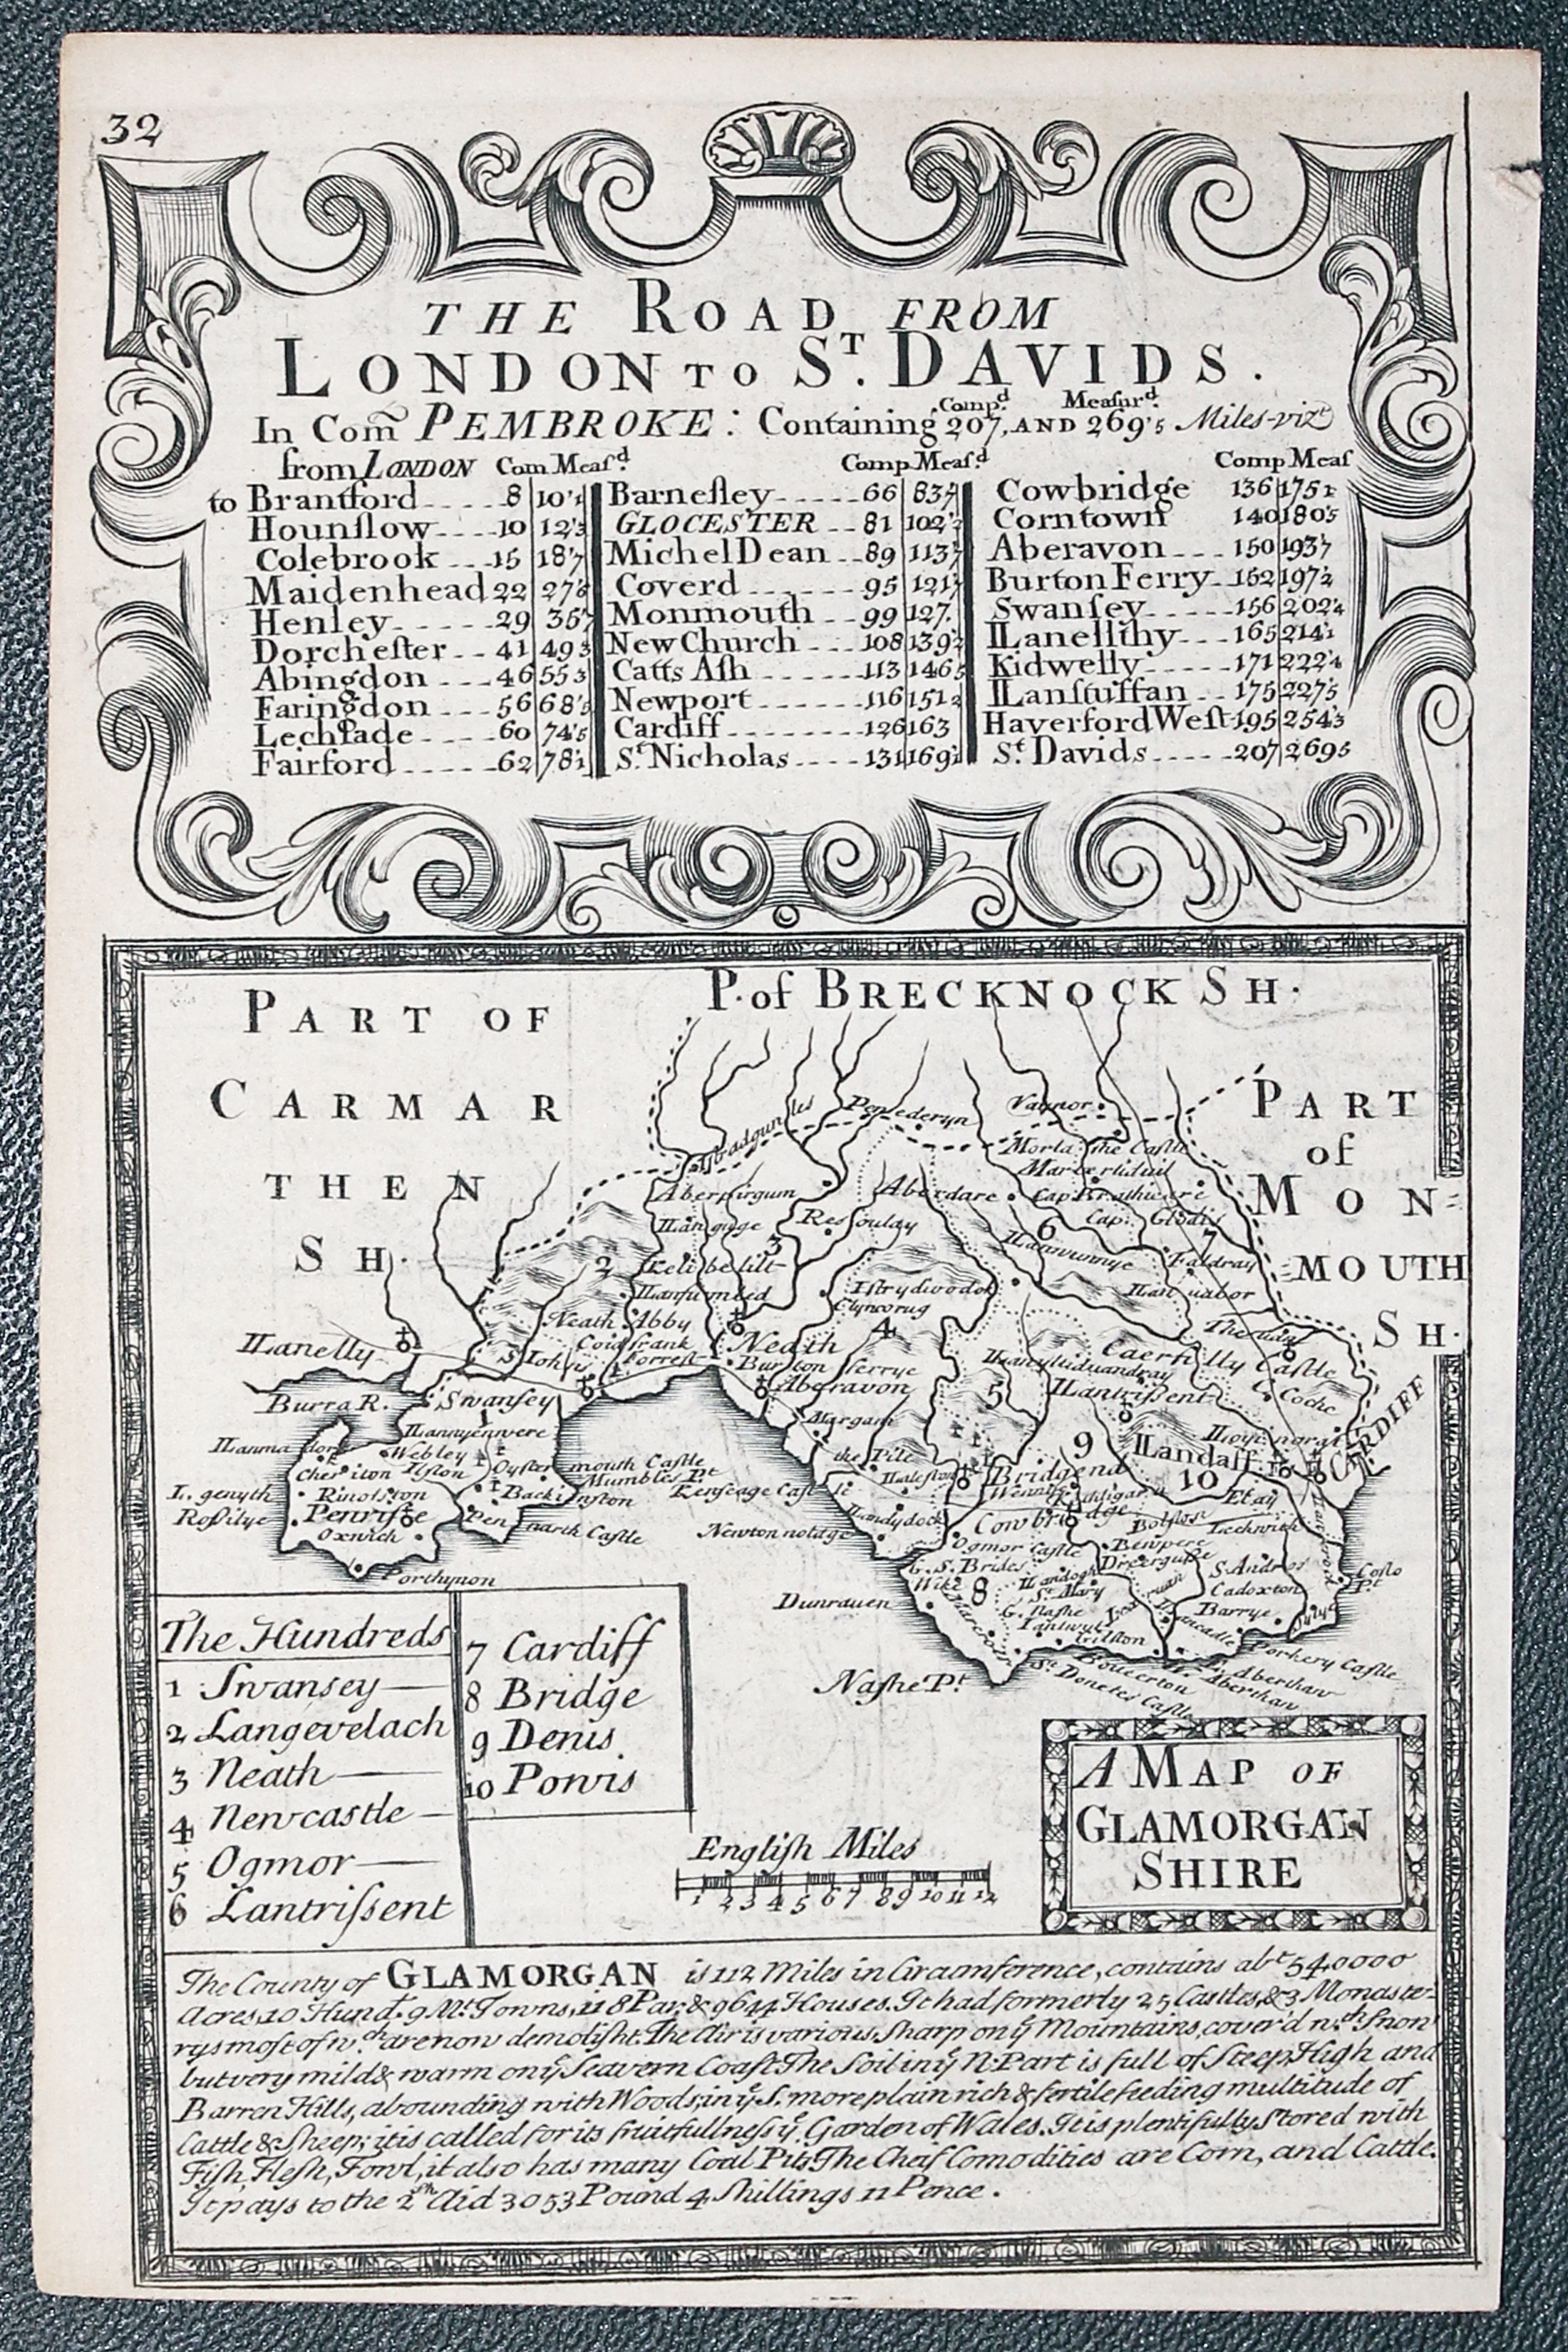 32
THE ROAD FROM
LONDON TO S.T DAVIDS.
Comp.d Measur.d
In Com̃ PEMBROKE: Containing 207, AND 269'5 Miles-viz.t
from LONDON Com Meas.d
to Brantford 8 10'1
Hounſlow 10 12'3
Colebrook 15 18'7
Maidenhead 22 27'6
Henley 29 35'
Dorcheſter 41 49'3
Abingdon 46 55 3
Faringdon 56 68'5
Lechlade 60 74'5
Fairford 62 78'1
Comp Meaſ.d
Barneſley 66 83'7
GLOCESTER 81 102'2
Michel Dean 89 113'7
Coverd 95 121'7
Monmouth 99 127.
New Church 108 139'2
Catts Aſh 113 146'5
Newport 116 151'2
Cardiff 126 163
S.t Nicholas 131 169'1
Comp Meaſ
Cowbridge 136 175 1
Corntown 140 180'5
Aberavon 150 193'7
Burton Ferry 152 197'2
Swanſey 156 202'4
Llanellthy 165 214'1
Kidwelly 171 222'4
Llanſtuffan 175 227'5
Haverford Weſt 195 254'3
S.t Davids 207 269 5
P. of BRECKNOCK SH.
PART OF
CARMAR
THEN
SH.
PART
of
MON=
MOUTH
SH.
Stradgunles
Penederyn
Vaynor
Morla
The Castle
Marterliduil
Aberpirgum
Aberdare
Cap Brathiwere
Llanguge
Resoulay
Cap. Gladis
6
7
2
3
Llanwunnye
Faldray
Kelibebilt
Llansumled
Istrydwodok
Llanuabor
Clyncorug
Neath Abby
4
Coidfrank
Forrest
S Iohns
Neath
Llanelly
Burton ferrye
Caerfilly Castle
Burra R.
Swansey
Aberavon
5
Llantriſſent
Coche
Llannyenwere
Margam
CARDIFF
Llanmadok
Webley
Oystermouth Castle
the Pile
9
Llandaff
Cheriton
Ilston
Mumbles P.t
Bridgend
10
Kenfeage Castle
L. genyth
Rinolston
Roſilye
Penriſe
Oxwich
Pennarth Castle
Newton notage
Landydock
Cowbridge
Elay
Lechwith
Ogmor Castle
Bewpere
S. Brides
8
S.t Mary
Wike
Porthynon
Dunrauen
Cadoxton
Barrye
G. Nashe
Gilston
Sully
Porkery Castle
Boverton
Aberthaw
Aberthaw
S.t Donetes Castle
Nashe P.t
The Hundreds
1 Swansey
2 Langevelach
3 Neath
4 Newcastle
5 Ogmor
6 Lantriſsent
7 Cardiff
8 Bridge
9 Denis
10 Powis
English Miles
1 2 3 4 5 6 7 8 9 10 11 12
A MAP OF
GLAMORGAN
SHIRE
The County of GLAMORGAN is 112 Miles in Circumference, contains ab.t 540000
Acres, 10 Hund.s 9 M.t Towns, 118 Par. & 9644 Houses. It had formerly 25 Castles, & 3 Monaste-
rys most of w.ch are now demolisht. The Air is various, Sharp on y.e Mountains, cover'd w.th Snow
but very mild & warm on y.e Seavern Coaſt The Soil in y.e N. Part is full of Steep, High and
Barren Hills, abounding with Woods; in y.e S. more plain rich & fertile feeding multitude of
Cattle & Sheep; it is called for its fruitfullneſs y.e Garden of Wales. It is plentifully Stored with
Fiſh, Fleſh, Fowl, it also has many Coal Pits The Cheif Comodities are Corn, and Cattle.
It pays to the 2.sh Aid 3053 Pound 4 Shillings 11 Pence.